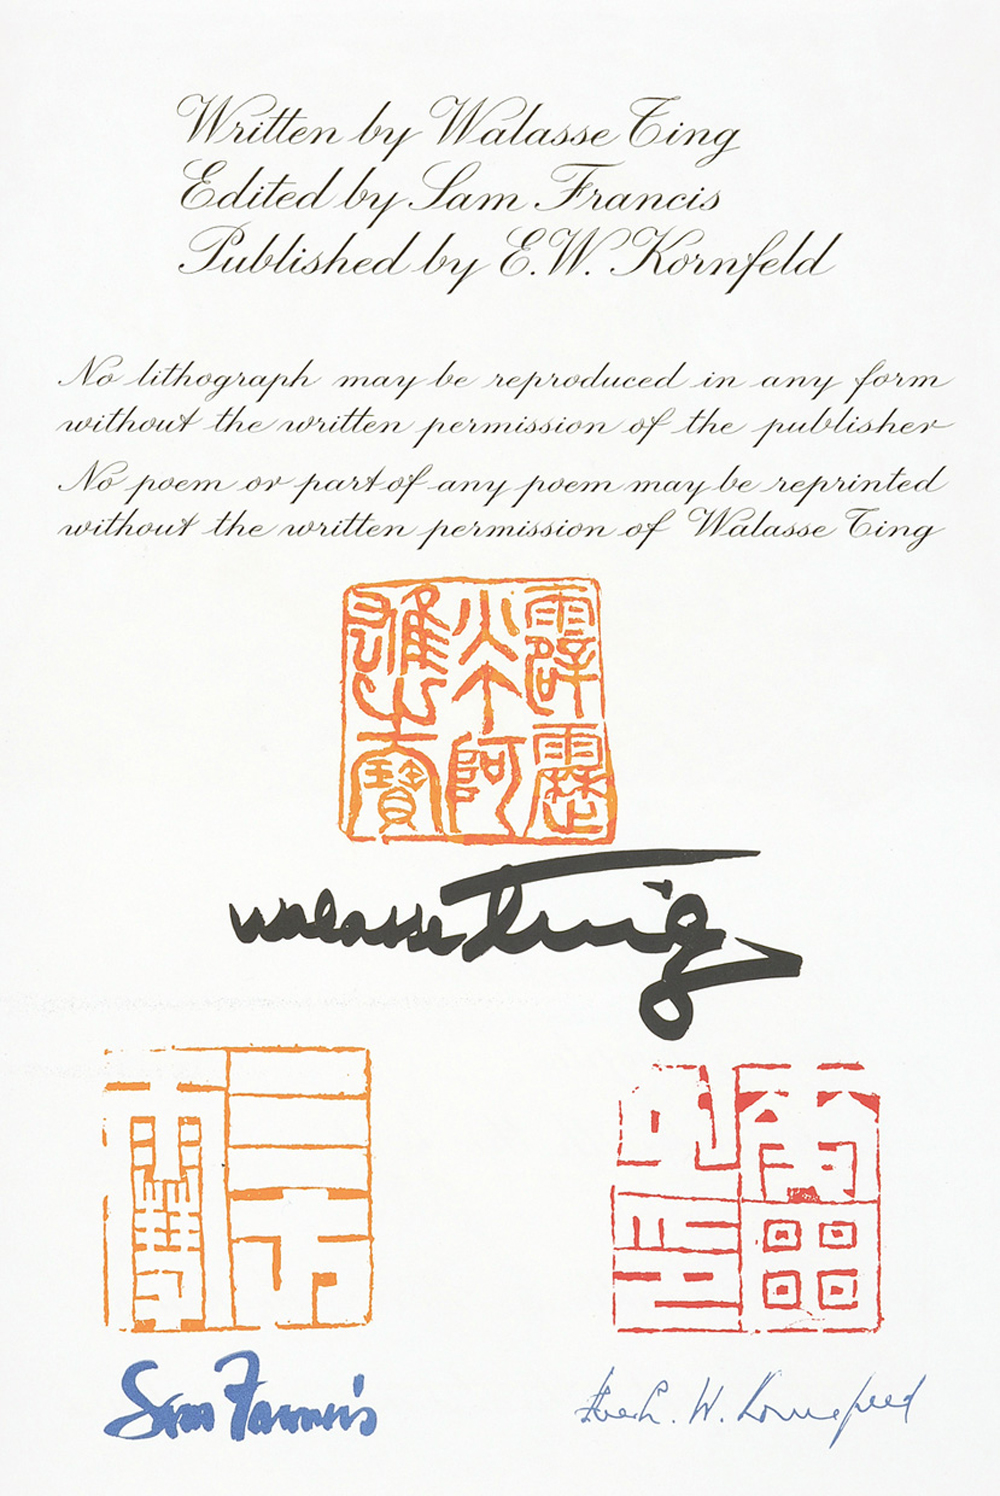 Written by Walasse Ting
Edited by Sam Francis
Published by E.W. Kornfeld
No lithograph may be reproduced in any form
without the written permission of the publisher
No poem or part of any poem may be reprinted
without the written permission of Walasse Ting
霹靂
阿
寶
walasse Ting
Sam Francis
Eberh. W. Kornfeld